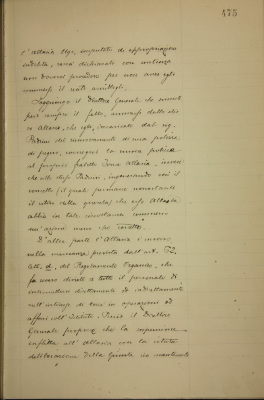 475
l'Allaria Ugo, imputato di appropriazione
indebita, venne dichiarato con sentenza
non doversi procedere per non aver egli
commesso il reato ascrittogli.
Soggiunge il Direttore Generale che
pur sempre il fatto, ammesso dallo stesso
Allaria, che egli, incaricato dal sig.
Padrini del rinnovamento di una polizza
di pegno, consegnò la nuova polizza
al proprio fratello Allaria, invece
che allo stesso Padrini, ingenerando così il
sospetto (il quale permane nonostante
il esito della querela) che esso Allaria
abbia in tale circostanza commesso
un'azione meno che corretta.
D'altra parte l'Allaria è incorso
nella mancanza prevista dall'art. 72,
lett. d, del Regolamento Organico, che
fa divieto a tutto il personale di
intromettersi direttamente od indirettamente
nell'interesse di terzi in operazioni od
affari coll'Istituto. Perciò il Direttore
Generale propone che la sospensione
inflitta all'Allaria con la citata
deliberazione della Giunta sia mantenuta